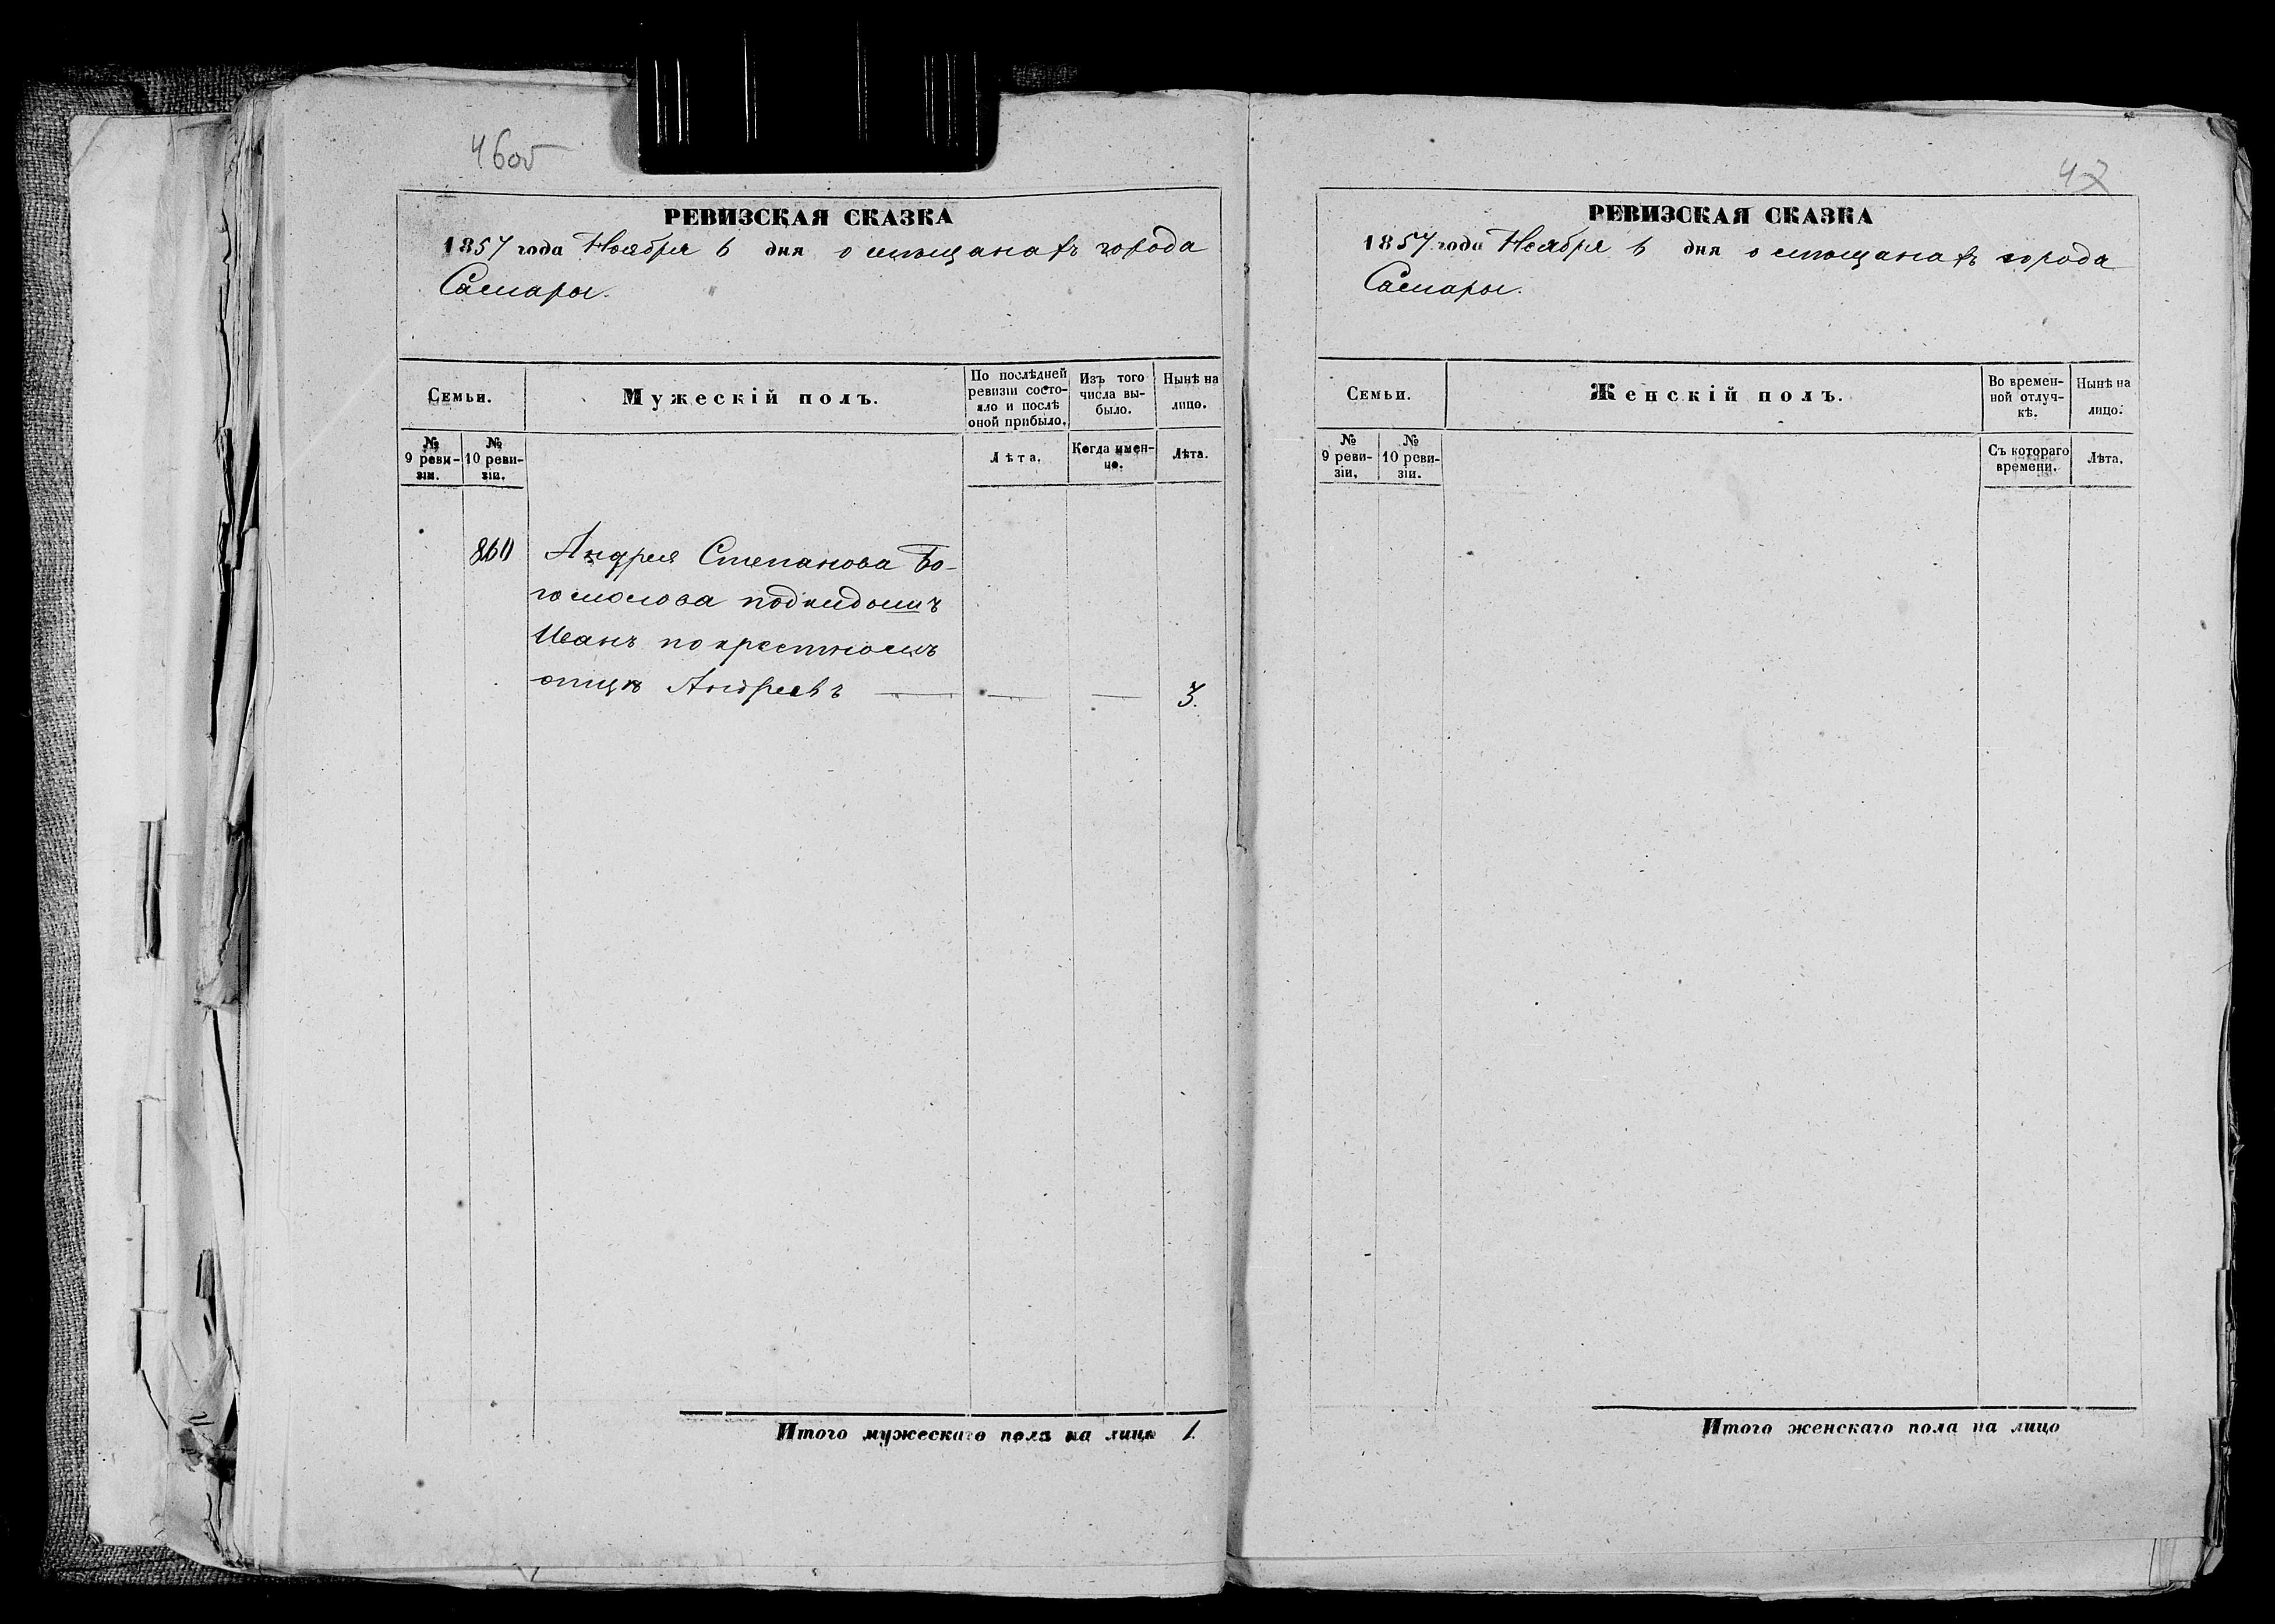 46об
РЕВИЗСКАЯ СКАЗКА
1857 года Ноября 6 дня о мѣщанахъ города
Самары.
Семьи.
Мужескій полъ.
По послѣдней ревизіи состояло и послѣ оной прибыло.
Изъ того числа выбыло.
Нынѣ на лицо.
№ 9 ревизіи.
№ 10 ревизіи.
Лѣта.
Когда именно.
Лѣта.
860 Андрея Степанова Бо-
гомолова подкидышъ
Иванъ по крестномъ
отцѣ Андреевъ — — — 3.
Итого мужескаго пола на лицо 1.
47
РЕВИЗСКАЯ СКАЗКА
1857 года Ноября 6 дня о мѣщанахъ города
Самары.
Семьи.
Женскій полъ.
Во временной отлучкѣ.
Нынѣ на лицо.
№ 9 ревизіи.
№ 10 ревизіи.
Съ котораго времени.
Лѣта.
Итого женскаго пола на лицо